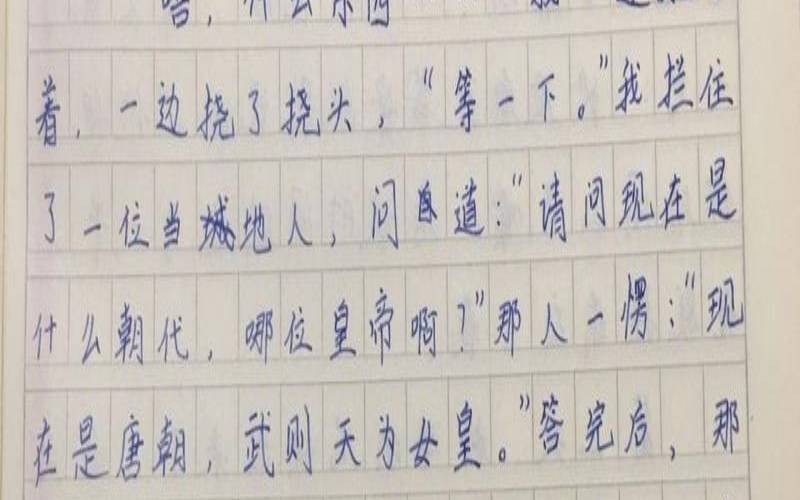 啥，什么东西
着，一边挠了挠头，“等一下。”我拦住
了一位当地人，问道：“请问现在是
什么朝代，哪位皇帝啊？”那人一愣：“现
在是唐朝，武则天为女皇。”答完后，那